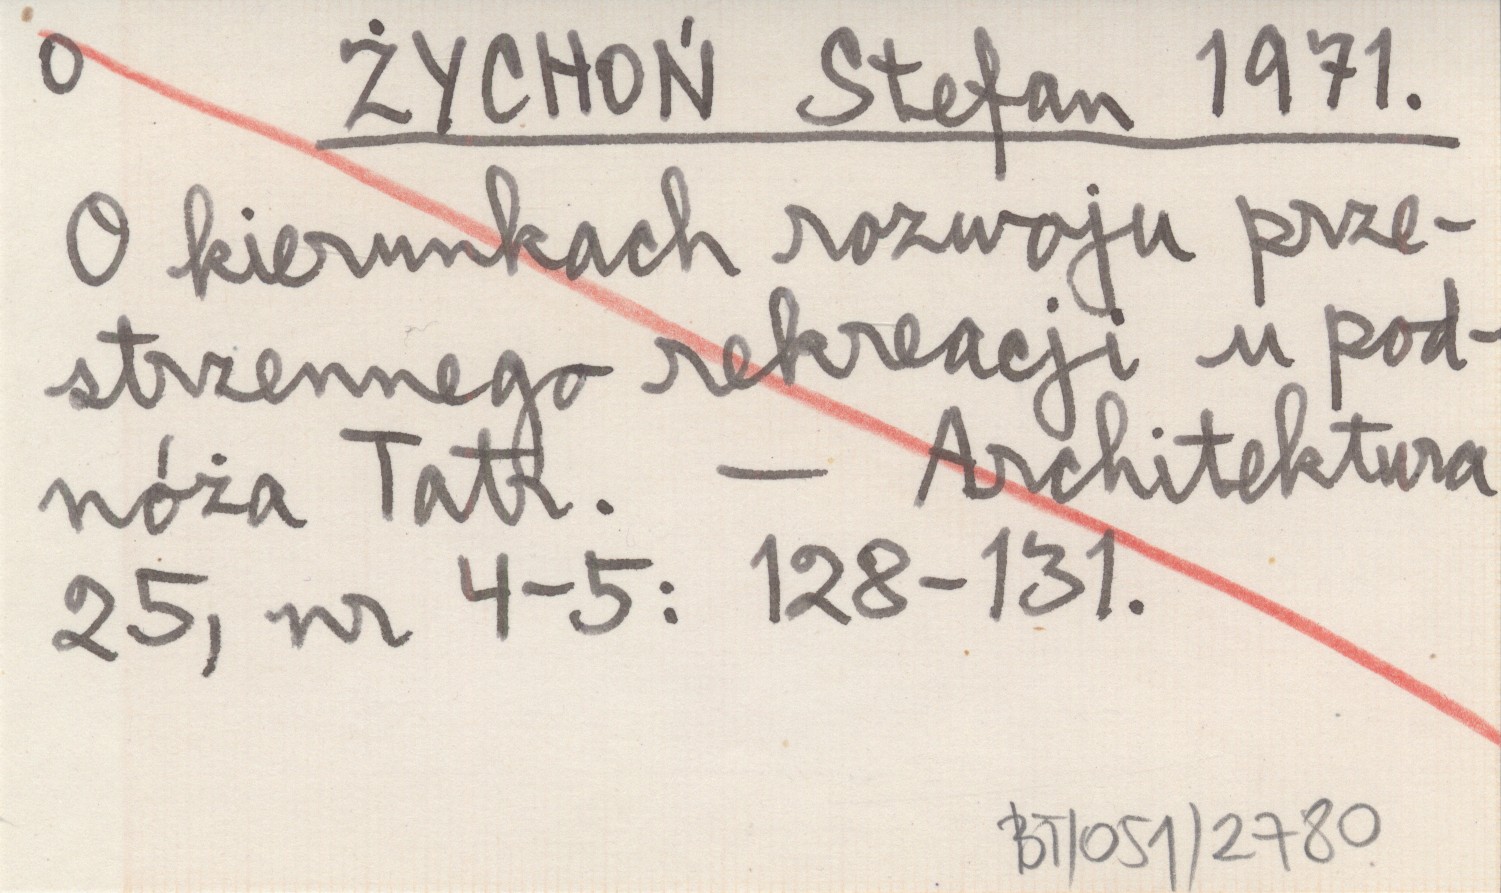 O ŻYCHOŃ Stefan 1971.
O kierunkach rozwoju prze-
strzennego rekreacji u pod-
nóża Tatr. — Architektura
25, nr 4-5: 128-131.
BT/051/2780